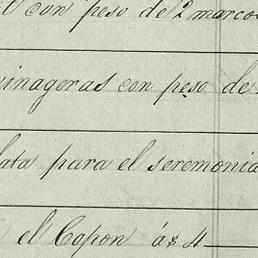 con peso de 2 marcos
vinageras con peso de
lata para el seremonia
el Copon á $ 4